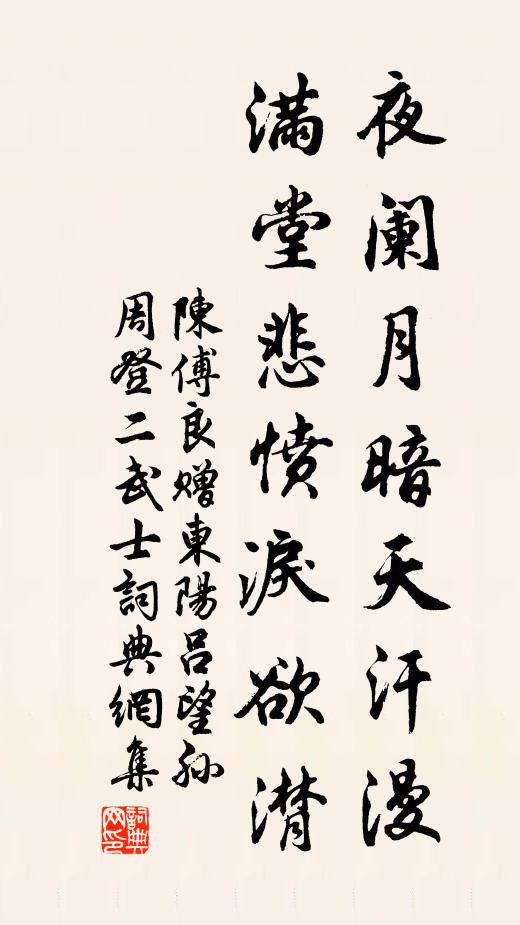 夜阑月暗天汗漫
满堂悲愤淚欲潸
陳傅良赠東陽吕望孙
周登二武士詞典網集
詞典网印